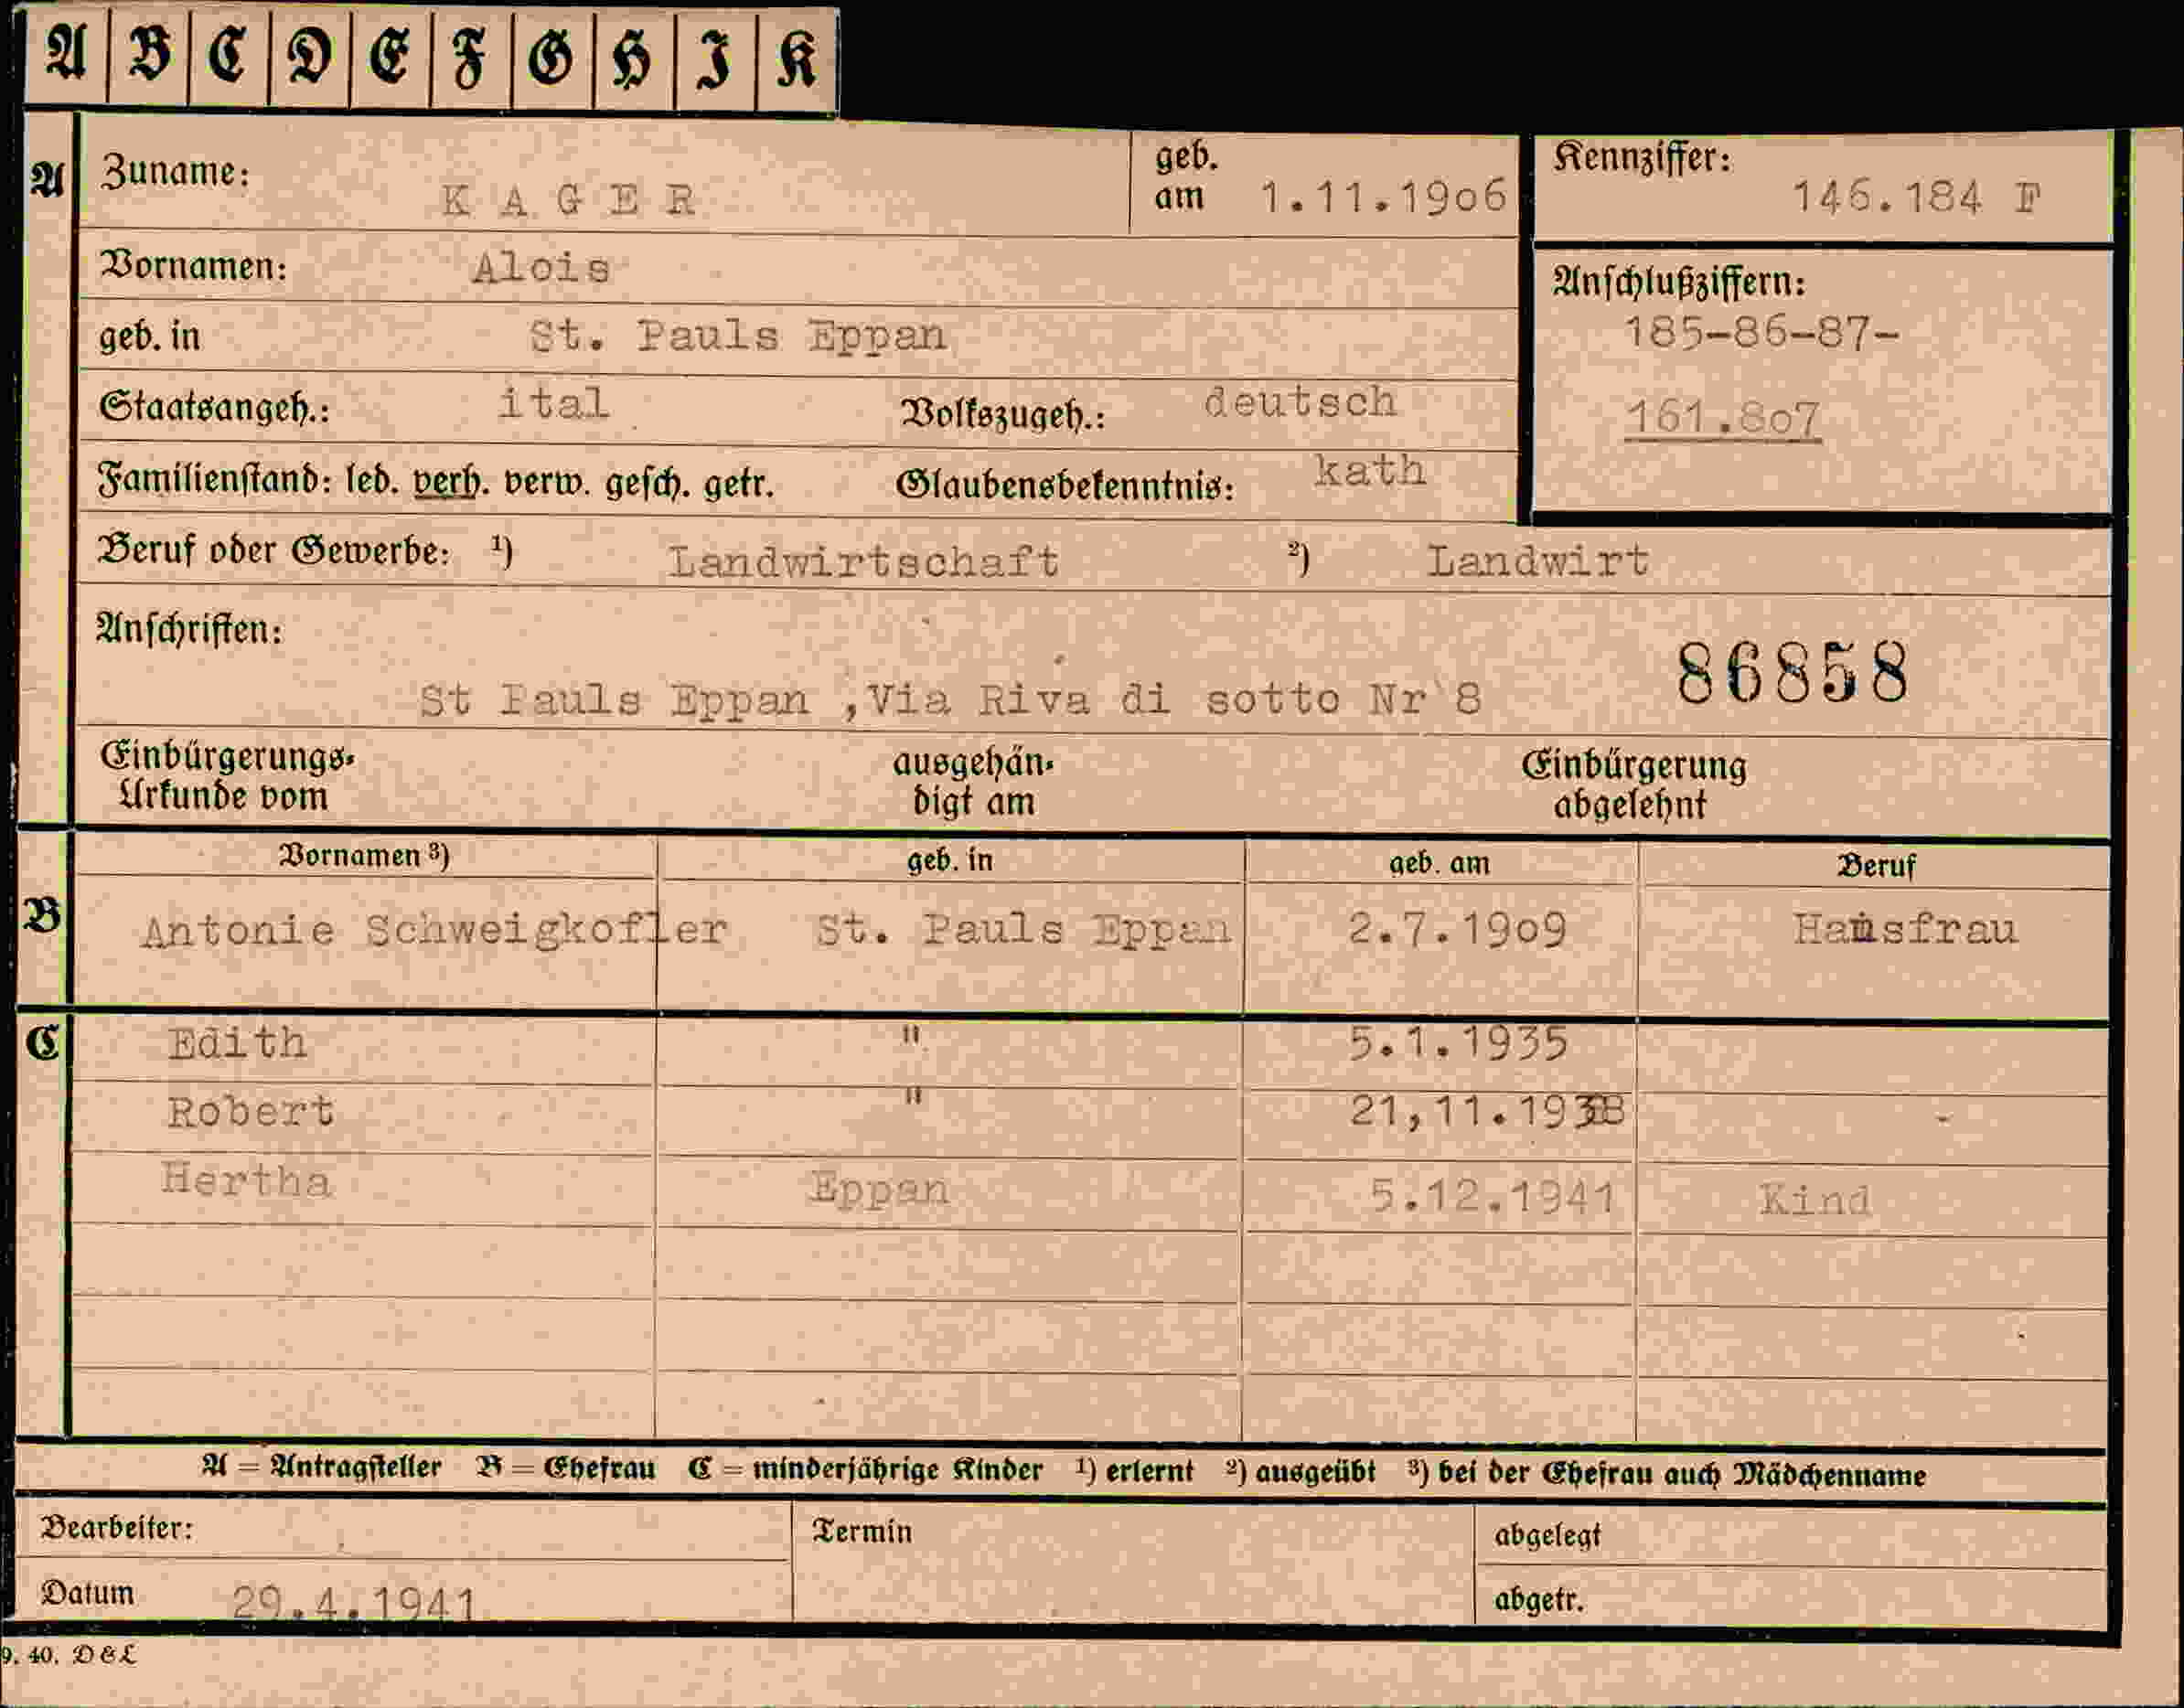 A B C D E F G H I K
A Zuname: KAGER geb. am 1.11.1906 Kennziffer: 146.184 F
Vornamen: Alois
Anschlußziffern:
geb. in St. Pauls Eppan 185-86-87-
Staatsangeh.: ital Volkszugeh.: deutsch 161.807
Familienstand: led. verh. verw. gesch. getr. Glaubensbekenntnis: kath
Beruf oder Gewerbe: ¹) Landwirtschaft ²) Landwirt
Anschriften:
86858
St Pauls Eppan ,Via Riva di sotto Nr 8
Einbürgerungs-Urkunde vom ausgehändigt am Einbürgerung abgelehnt
Vornamen ³) geb. in geb. am Beruf
B Antonie Schweigkofler St. Pauls Eppan 2.7.1909 Hausfrau
C Edith " 5.1.1935
Robert " 21,11.1938
Hertha Eppan 5.12.1941 Kind
A = Antragsteller B = Ehefrau C = minderjährige Kinder ¹) erlernt ²) ausgeübt ³) bei der Ehefrau auch Mädchenname
Bearbeiter: Termin abgelegt
Datum 29.4.1941 abgetr.
9. 40. D & L